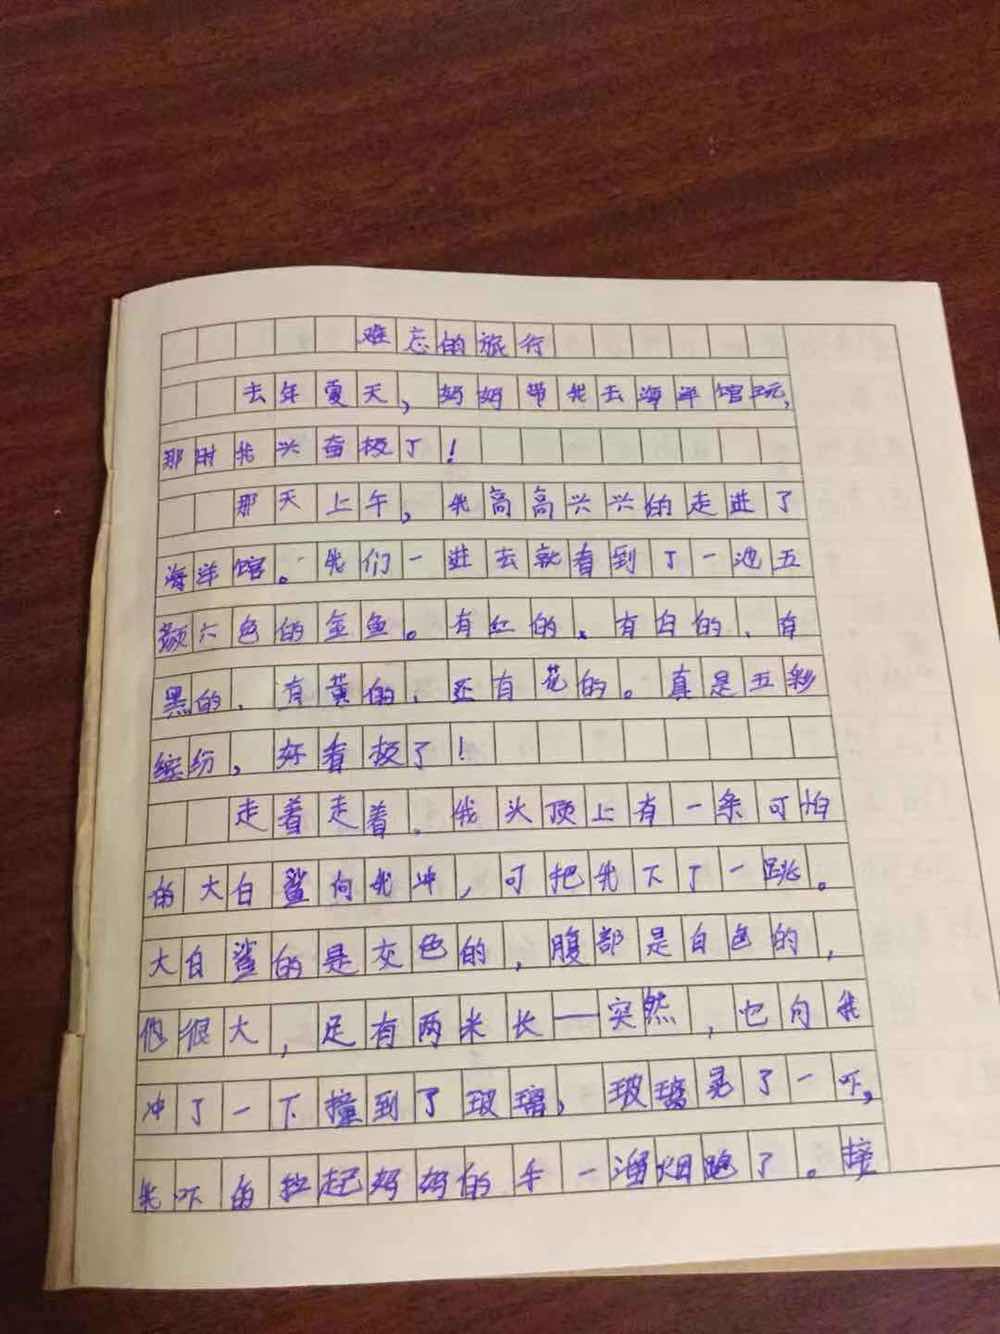 难忘的旅行
去年夏天，妈妈带我去海洋馆玩，
那时我兴奋极了！
那天上午，我高高兴兴的走进了
海洋馆。我们一进去就看到了一池五
颜六色的金鱼。有红的、有白的、有
黑的、有黄的、还有花的。真是五彩
缤纷，好看极了！
走着走着，我头顶上有一条可怕
的大白鲨向我冲，可把我下了一跳。
大白鲨的是灰色的，腹部是白色的，
他很大，足有两米长——突然，它向我
冲了一下撞到了玻璃，玻璃晃了一下，
我吓的拉起妈妈的手一溜烟跑了。接